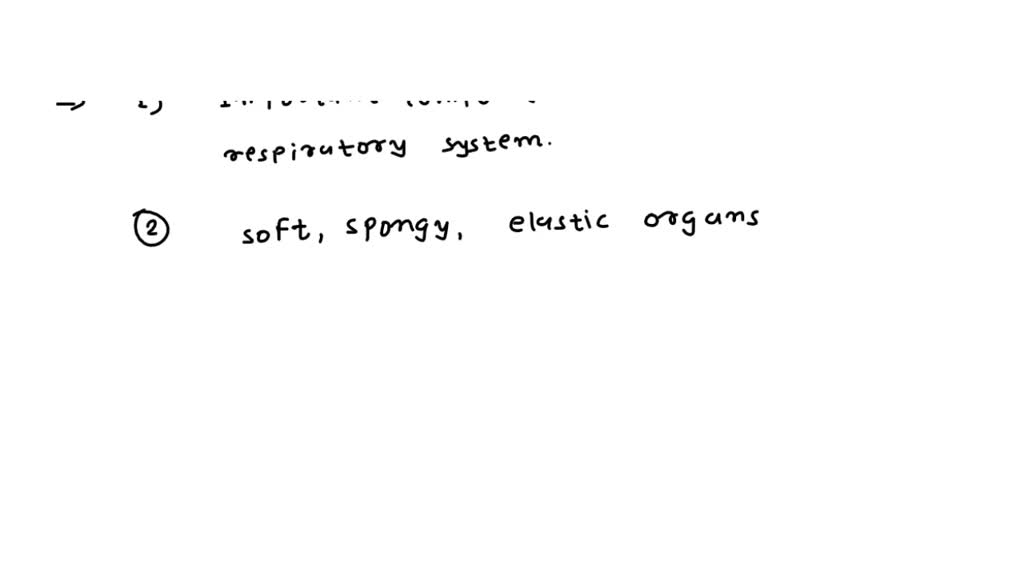 respiratory system.
② soft, spongy, elastic organs